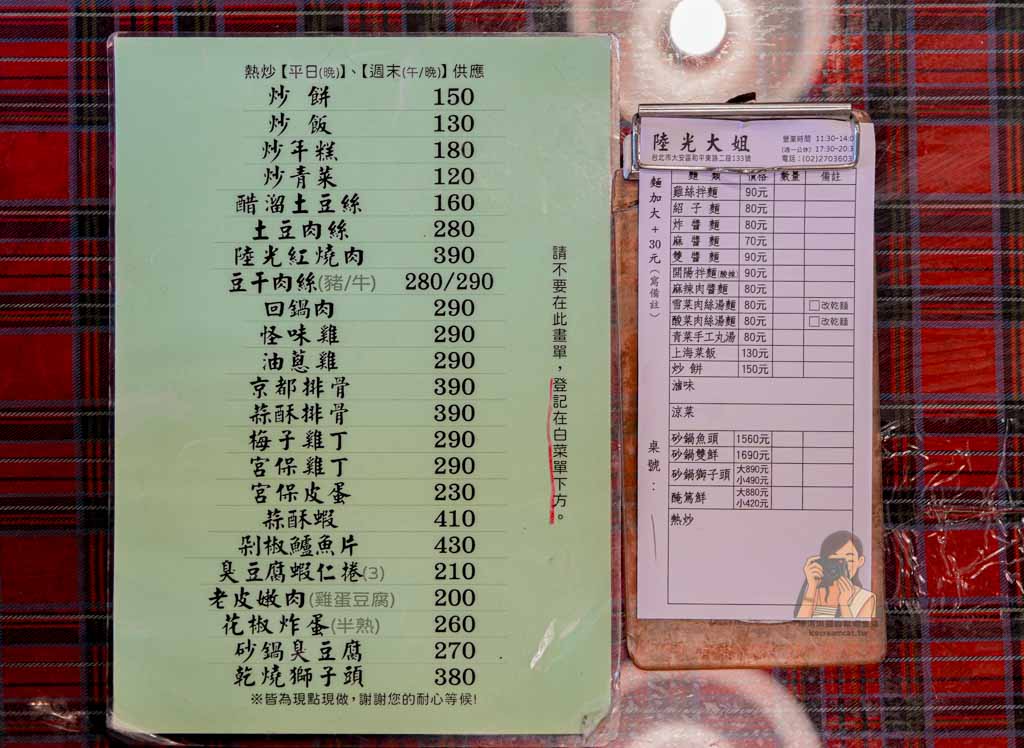 熱炒【平日(晚)】、【週末(午/晚)】供應
炒餅 150
炒飯 130
炒年糕 180
炒青菜 120
醋溜土豆絲 160
土豆肉絲 280
陸光紅燒肉 390
豆干肉絲(豬/牛) 280/290
回鍋肉 290
怪味雞 290
油蔥雞 290
京都排骨 390
蒜酥排骨 390
梅子雞丁 290
宮保雞丁 290
宮保皮蛋 230
蒜酥蝦 410
剁椒鱸魚片 430
臭豆腐蝦仁捲(3) 210
老皮嫩肉(雞蛋豆腐) 200
花椒炸蛋(半熟) 260
砂鍋臭豆腐 270
乾燒獅子頭 380
※皆為現點現做,謝謝您的耐心等候!
請不要在此畫單，登記在白菜單下方。
陸光大姐
台北市大安區和平東路二段133號
營業時間 11:30-14:0
(週一公休) 17:30-20:3
電話：(02)2703603
麵類 價格 數量 備註
雞絲拌麵 90元
紹子麵 80元
炸醬麵 80元
麻醬麵 70元
雙醬麵 90元
開陽拌麵(酸辣) 90元
麻辣肉醬麵 80元
雪菜肉絲湯麵 80元 □改乾麵
酸菜肉絲湯麵 80元 □改乾麵
青菜手工丸湯 80元
上海菜飯 130元
炒餅 150元
滷味
涼菜
砂鍋魚頭 1560元
砂鍋雙鮮 1690元
砂鍋獅子頭 大890元 小490元
醃篤鮮 大880元 小420元
熱炒
麵加大+30元(寫備註)
桌號：
icecreamcat.tw